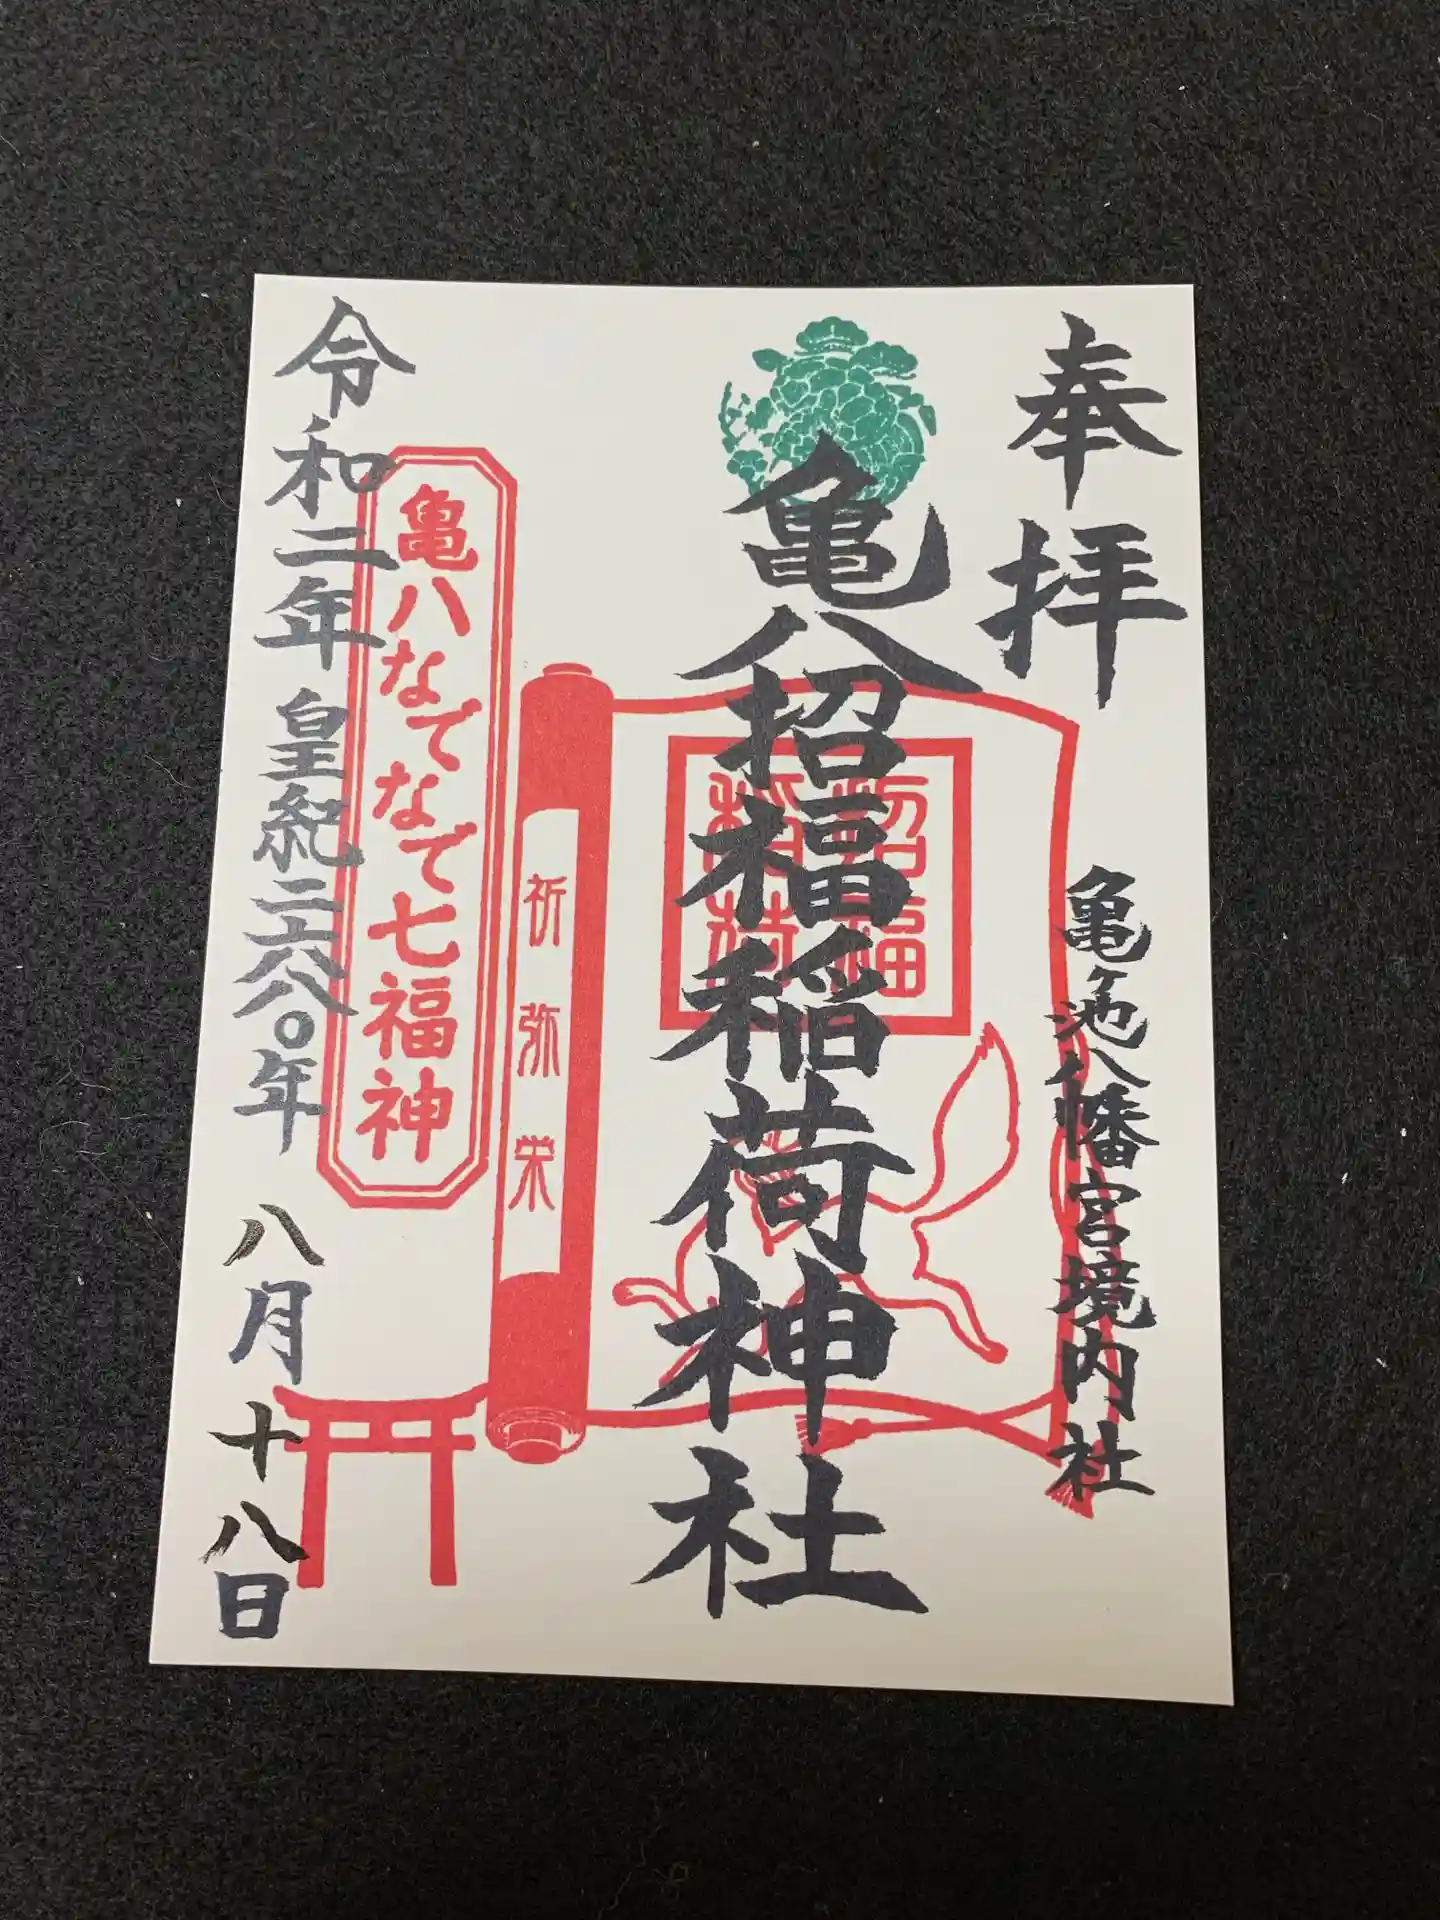 奉拝
亀ヶ池八幡宮境内社
亀八招福稲荷神社
招福
稲荷
祈弥栄
亀八なでなで七福神
令和二年 皇紀二六八〇年 八月十八日